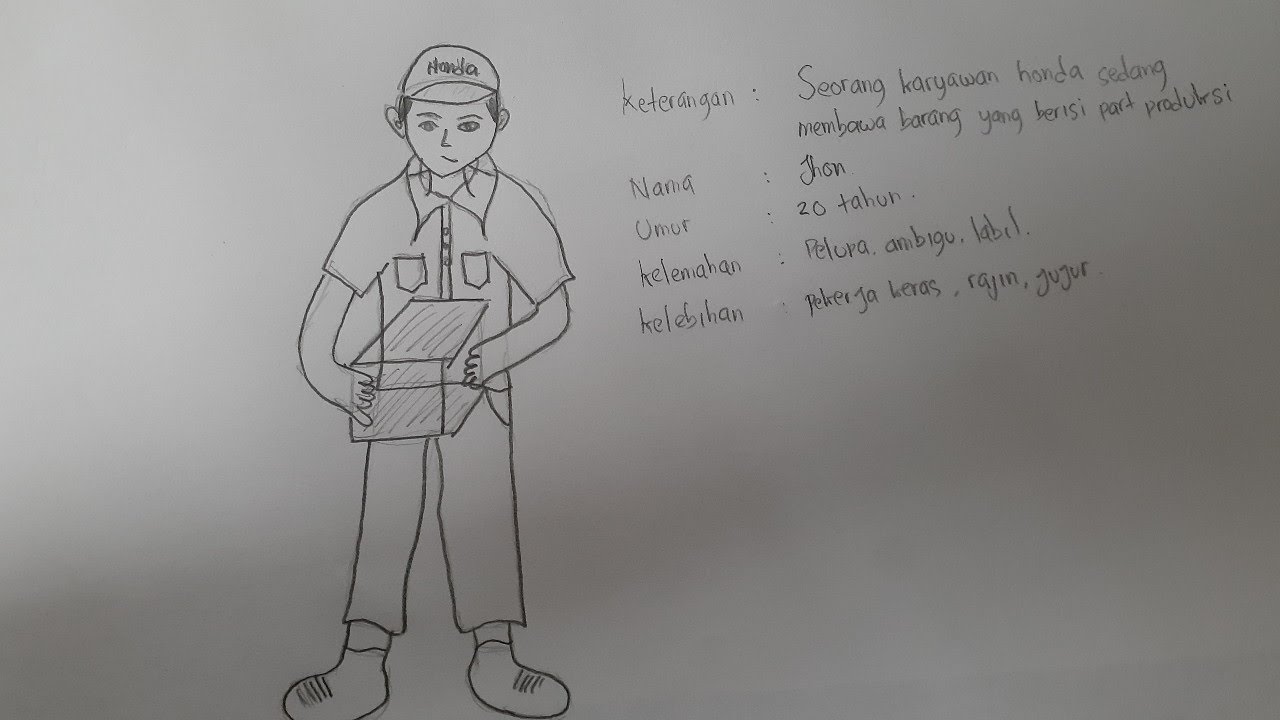 Honda
Keterangan : Seorang karyawan honda sedang
membawa barang yang berisi part produksi
Nama : Jhon.
Umur : 20 tahun.
kelemahan : Pelupa, ambigu, labil.
kelebihan : Pekerja keras, rajin, jujur.